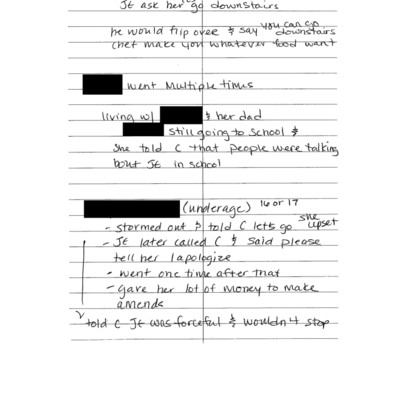 JE ask her go downstairs
he would flip over & say you can go downstairs
chef make you whatever food want
went multiple times
living w/ & her dad
still going to school &
she told C that people were talking
bout JE in school
(underage) 16 or 17
- stormed out & told C lets go she upset
- JE later called C & said please
tell her I apologize
- went one time after that
- gave her lot of money to make
amends
told C JE was forceful & wouldn't stop